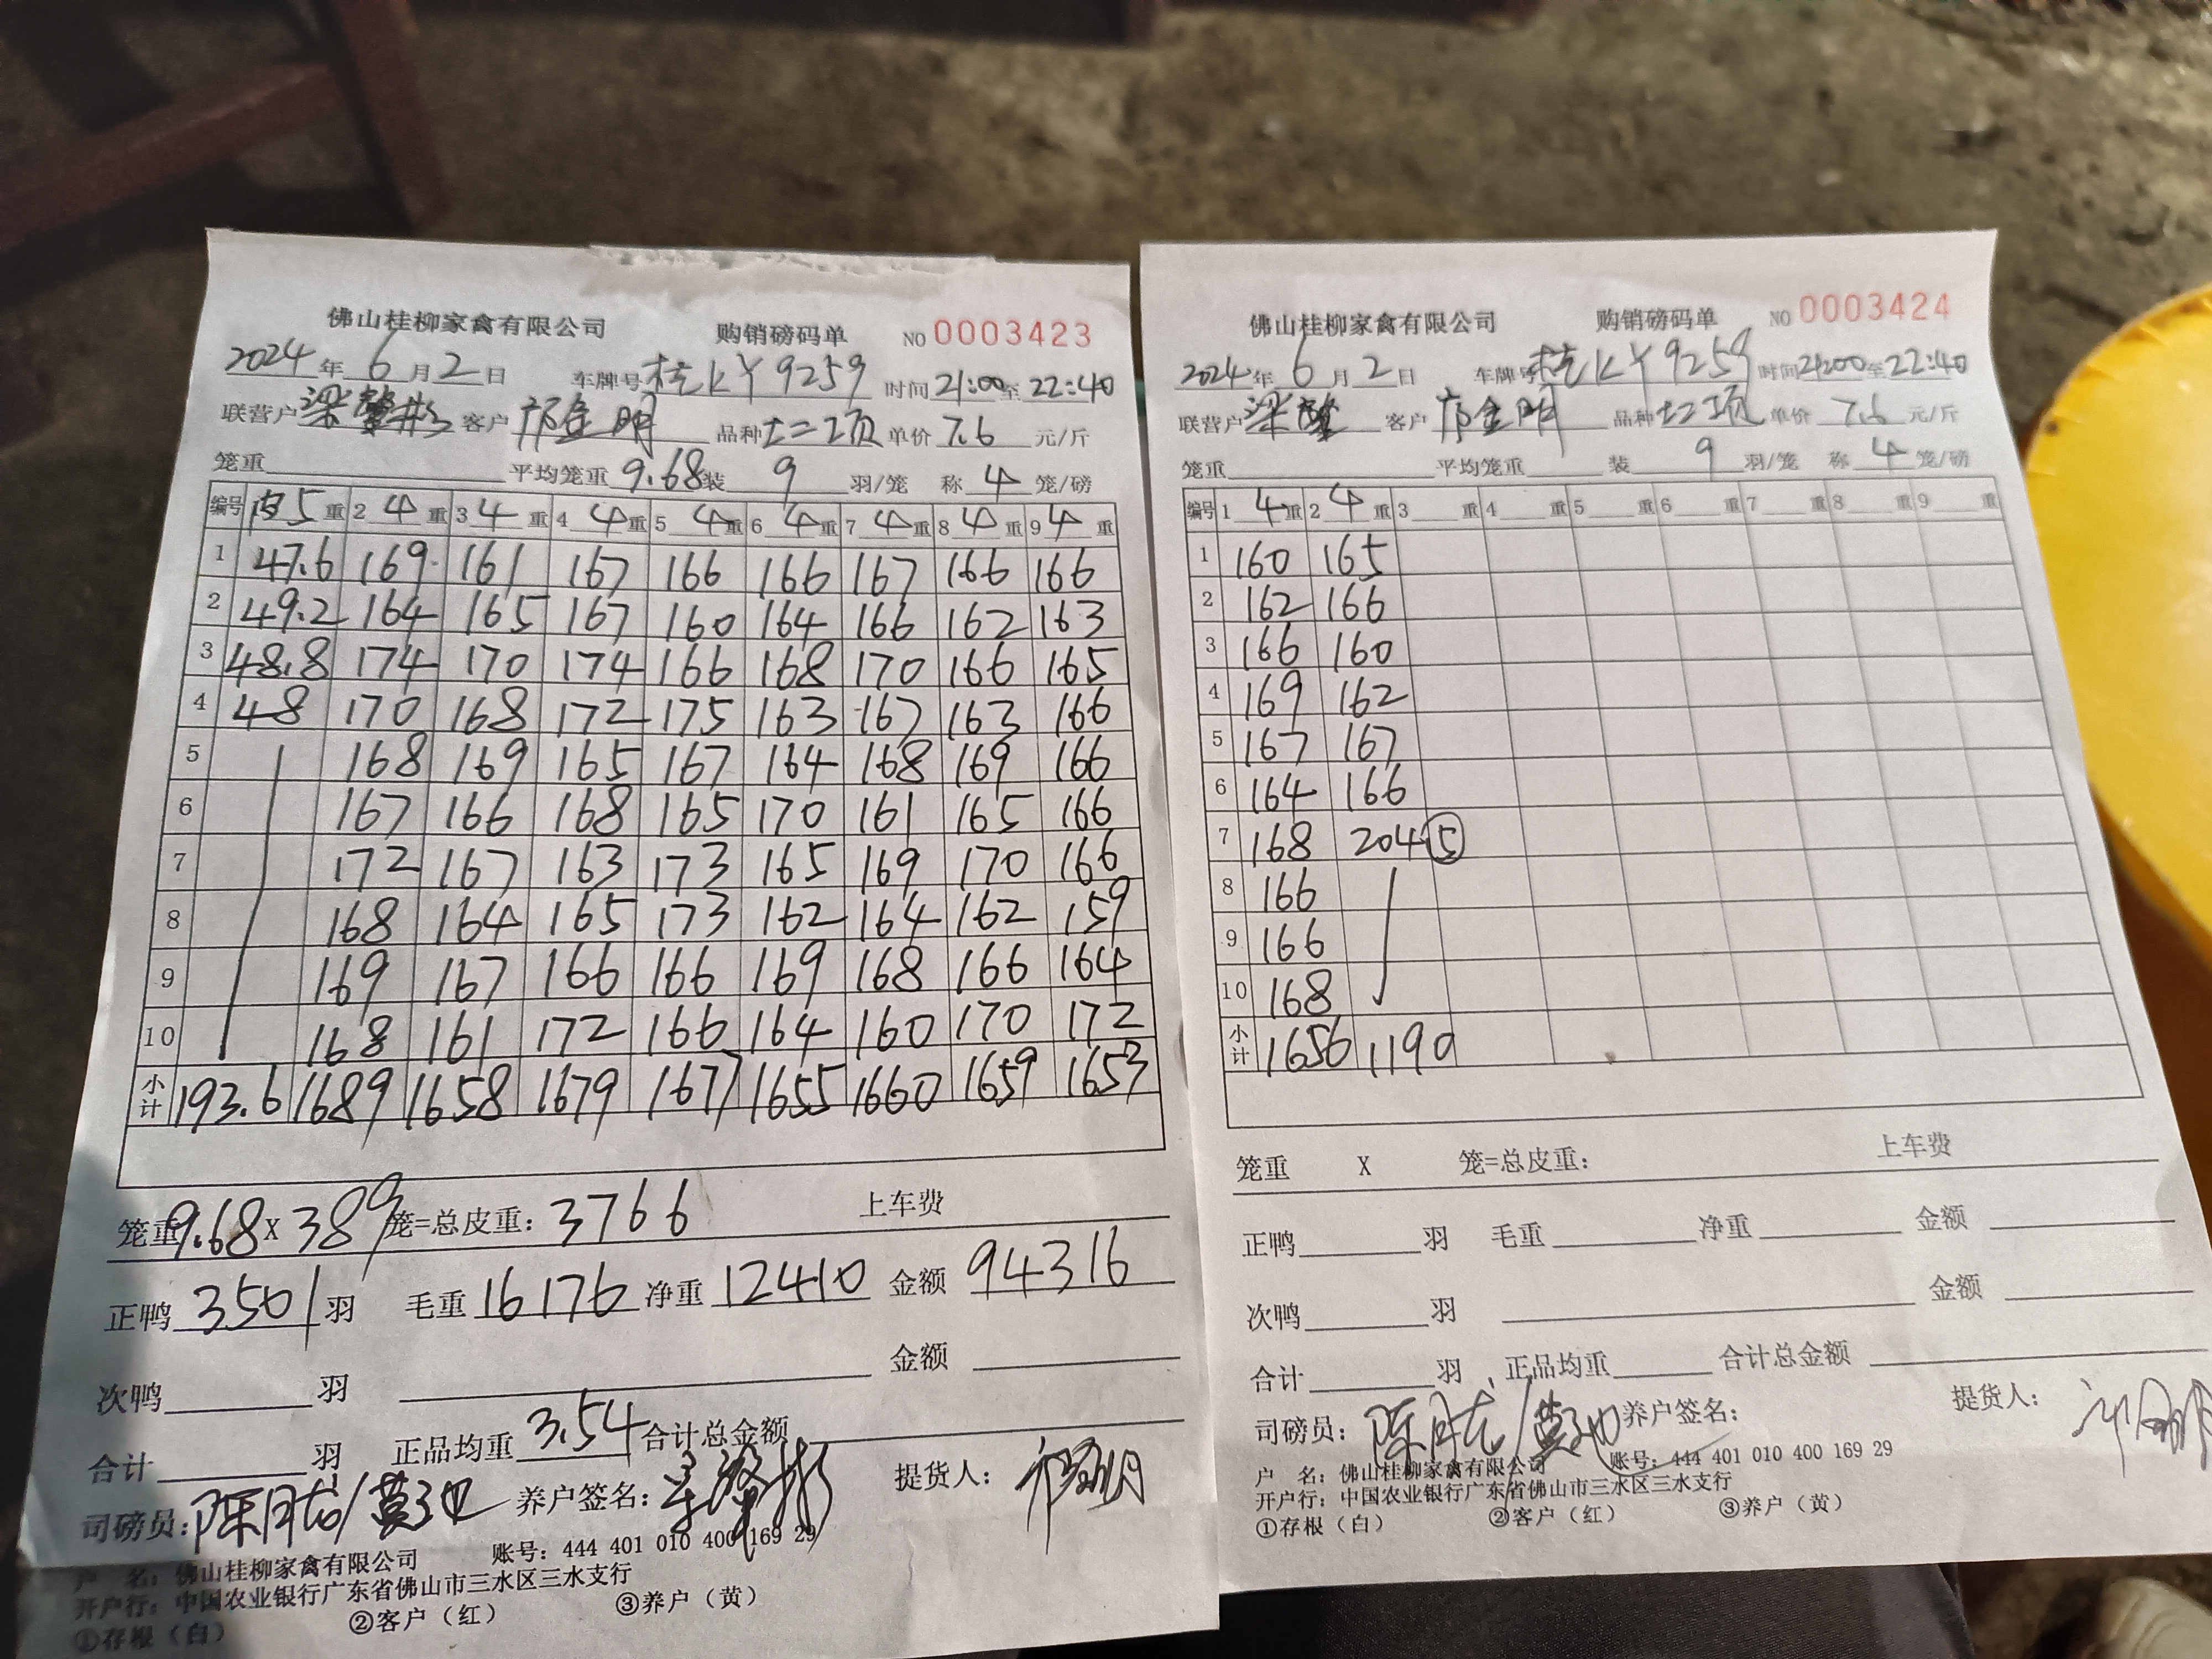 佛山桂柳家禽有限公司 购销磅码单 NO 0003423
2024年6月2日 车牌号桂KY9259 时间21:00至22:40
联营户梁 客户 金明 品种 单价7.6元/斤
笼重 平均笼重9.68装9羽/笼 称4笼/磅
编号 5重 2 4重 3 4重 4 4重 5 4重 6 4重 7 4重 8 4重 9 4重
1 47.6 169 161 167 166 166 167 166 166
2 49.2 164 165 167 160 164 166 162 163
3 48.8 174 170 174 166 168 170 166 165
4 48 170 168 172 175 163 167 163 166
5 168 169 165 167 164 168 169 166
6 167 166 168 165 170 161 165 166
7 172 167 163 173 165 169 170 166
8 168 164 165 173 162 164 162 159
9 169 167 166 166 169 168 166 164
10 168 161 172 166 164 160 170 172
小计 193.6 1689 1658 1679 1677 1655 1660 1659 1653
笼重9.68X389笼=总皮重：3766 上车费
正鸭3501羽 毛重16176 净重12410 金额94316
次鸭 羽 金额
合计 羽 正品均重3.54合计总金额
司磅员：陈月 养户签名： 提货人：
户 名：佛山桂柳家禽有限公司 账号：444 401 010 400 169 29
开户行：中国农业银行广东省佛山市三水区三水支行
①存根（白） ②客户（红） ③养户（黄）
佛山桂柳家禽有限公司 购销磅码单 NO 0003424
2024年6月2日 车牌号桂KY9259 时间21:00至22:40
联营户梁 客户 金明 品种 单价7.6元/斤
笼重 平均笼重 装9羽/笼 称4笼/磅
编号 1 4重 2 4重 3 重 4 重 5 重 6 重 7 重 8 重 9 重
1 160 165
2 162 166
3 166 160
4 169 162
5 167 167
6 164 166
7 168 204⑤
8 166
9 166
10 168
小计 1656 1190
笼重 X 笼=总皮重： 上车费
正鸭 羽 毛重 净重 金额
次鸭 羽 金额
合计 羽 正品均重 合计总金额
司磅员：陈月 养户签名： 提货人：
户 名：佛山桂柳家禽有限公司 账号：444 401 010 400 169 29
开户行：中国农业银行广东省佛山市三水区三水支行
①存根（白） ②客户（红） ③养户（黄）